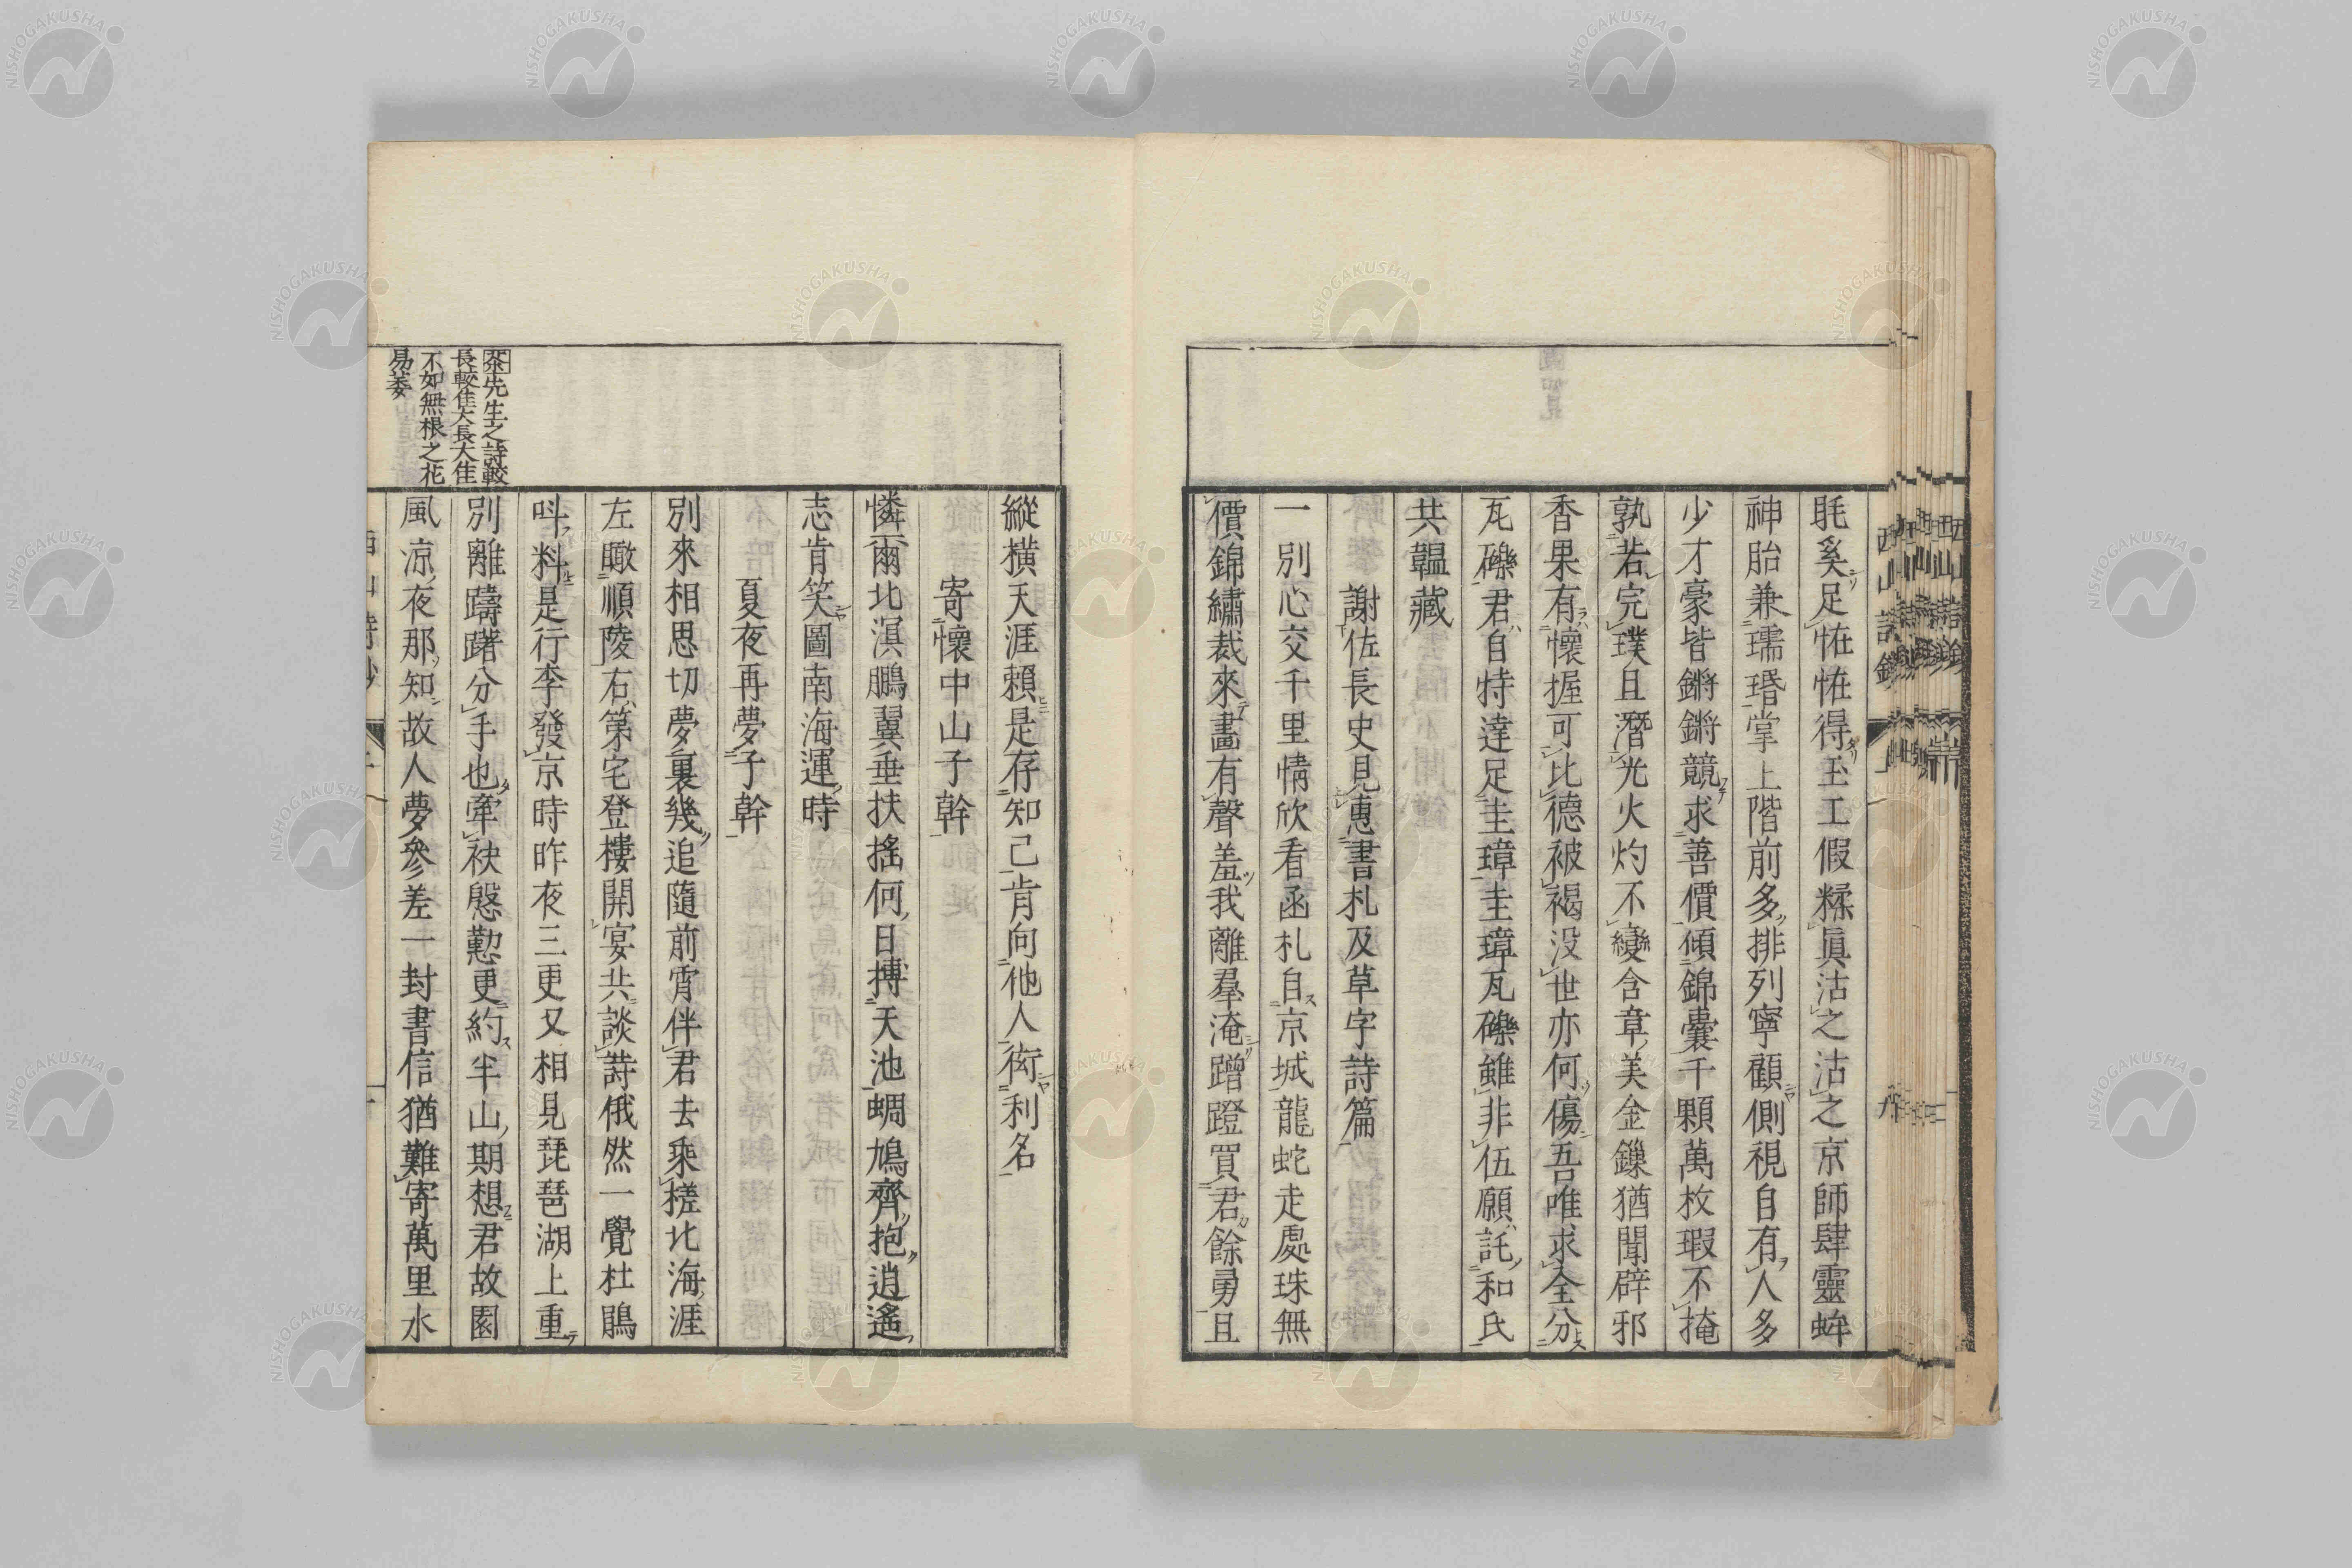 毦奚足恠恠得玉工假糅眞沽之沽之京師肆靈蚌
神胎兼璕琘掌上階前多排列寧顧側視自有人多
少才豪皆鏘鏘競求善價傾錦囊千顆萬枚瑕不掩
孰若完璞且潛光火灼不變含章美金鏁猶聞辟邪
香果有懷握可比德被褐没世亦何傷吾唯求全分
瓦礫君自特達足圭璋圭璋瓦礫雖非伍願託和氏
共韞藏
謝佐長史見惠書札及草字詩篇
一別心交千里情欣看函札自京城龍蛇走處珠無
價錦繡裁來畵有聲羞我離羣淹蹭蹬買君餘勇且
縱橫天涯賴是存知己肯向他人衒利名
寄懷中山子幹
憐爾北溟鵬翼垂扶搖何日摶天池蜩鳩齊抱逍遙
志肯笑圖南海運時
夏夜再夢子幹
別來相思切夢裏幾追隨前霄伴君去乘槎北海涯
左瞰順陵右第宅登樓開宴共談詩俄然一覺杜鵑
呌料是行李發京時昨夜三更又相見琵琶湖上重
別離躊躇分手也牽袂慇懃更約半山期想君故園
風凉夜那知故人夢參差一封書信猶難寄萬里水
茶先生之詩較
長較佳大長大佳
不如無根之花
易萎
西山詩鈔